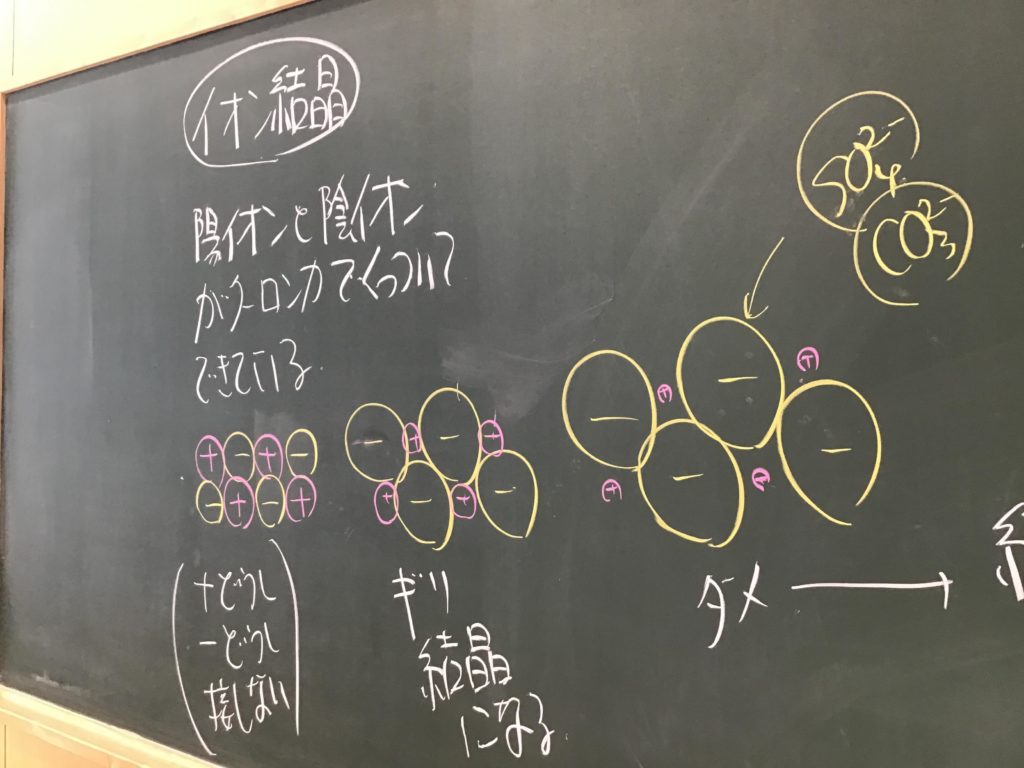 イオン結晶
陽イオンと陰イオン
がクーロン力でくっついて
できている.
SO₄²⁻
CO₃²⁻
+ - + -
- + - +
- + - +
+ - + -
- + - +
+ - + -
+どうし
-どうし
接しない
ギリ
結晶
になる.
ダメ